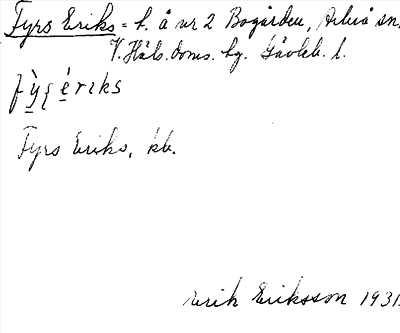 Fyrs Eriks = h. å nr 2 Bogården, Arbrå sn,
V. Häls. doms. hg. Gävleb. l.
fỳʂériks
Fyrs Eriks, kb.
Erik Eriksson 1931.